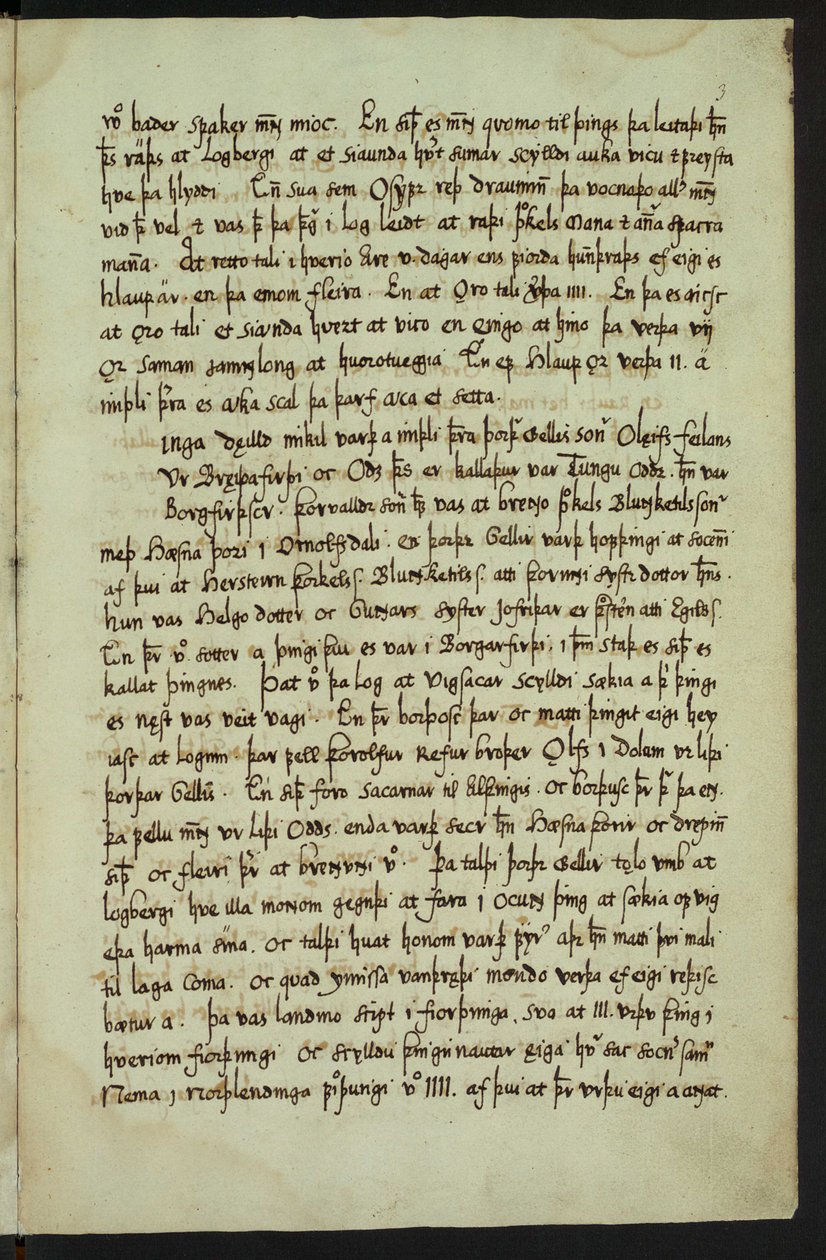 3
vͦ bader spaker mn̄ mioc. En siþ es mn̄ qvomo til þings þa leitaþi hn̄
þs ráþs at Logbergi at et siaunda hvˀt sumar scylldi auka vicu ⁊ freysta
hve þa hlyddi En̄ sva sem Osyfr reþ draumiñ þa vocnaþo allˀ mn̄
vid þ vel ⁊ vas þ þa þgˀ i log leidt at raþi þͦkels Mana ⁊ an̄a spacra
man̄a. At retto tali i hverio are v. dagar ens fiorda hun̄þraþs ef eigi es
hlaup ár. en þa einom fleira. En at Ǫro tali v̓þa IIII. En þa es eicsc
at ǫro tali et siaunda hvert at vico en engo at hino þa verþa vij
Ǫr saman jamnlong at hvorotveggia En̄ ef Hlaup ǫr verþa II. á
miþli þr̄a es aka scal þa þarf aca et setta.
Inga deilld mikil varþ a miþli þr̄a þorþˀ Gellis sonˀ Olęifs feilans
Vr Bręiþafirþi oc Odz þs er kallaþur var Tungu oddr. hn̄ var
Borgfirþscr. þorvalldr son̄ hs vas at breno þͦkels Blundketilssonˀ
meþ Hæsna þori i Ornolfsdali. en þorþr Gellir varþ hofþingi at socen̄i
af þvi at Hersteinn þorkels s. Blundketils s. atti þorunni systr dottor hn̄s.
hun vas Helgo dotter oc Gunnars syster Jofriþar er þͦstęn atti Egils s.
En þr̄ vͦ sotter a þingi þvi es var i Borgarfirþi. i þm̄ staþ es siþ es
kallat þingnes. Þat vͦ þa log at vigsacar scylldi sækia a þˀ þingi
es nęst vas veit vagi. En þr̄ borþosc þar oc matti þingit eigi hey
iasc at lognm. þar fell þorolfur Refur broþer Ǫlfs i Dolum ur liþi
þorþar Gellis. En siþ foro sacarnar til Alþingis. oc borþusc þr̄ þˀ þa en̄.
þa fellu mn̄ ur liþi Odds. enda varþ secr hn̄ Hæsna þorir oc drepin̄
siþ oc fleiri þr̄i at brennuni vͦ. Þa talþi þorþr Gellir tǫlo umb at
logbergi hve illa monom gegnþi at fara i ocunn þing at sækia of vig
eþa harma sina. oc talþi hvat honom varþ fyrˀ aþr hn̄ mætti þvi mali
til laga coma. oc quad ymissa vanþręþi mondo verþa ef eigi reþisc
bætur a. þa vas landino scipt i fiorþunga, svo at III. urþu þing i
hveriom fiorþungi oc scylldu þingunautar eiga hvˀ sac socnˀ samˀ
Nema i Norþlendinga fiͦþungi vͦ IIII. af þvi at þr̄ urþu eigi a annat.